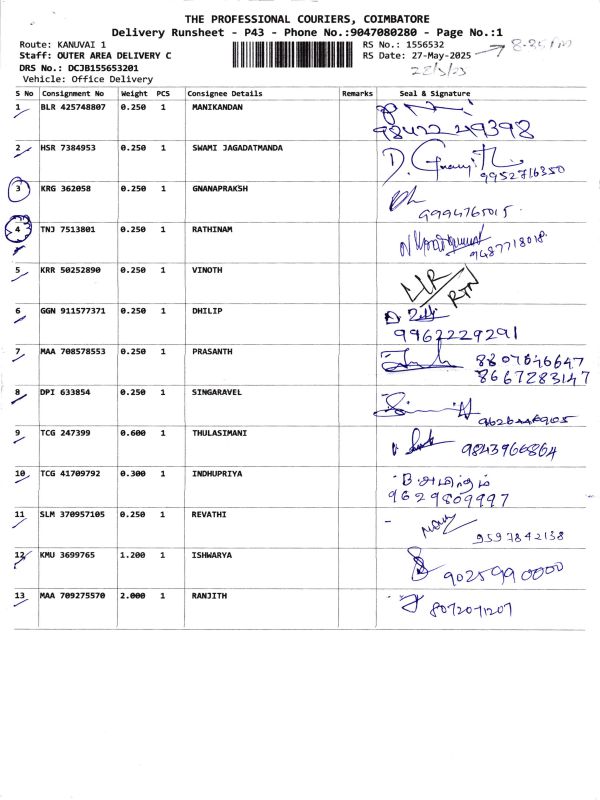 THE PROFESSIONAL COURIERS, COIMBATORE
Delivery Runsheet - P43 - Phone No.:9047080280 - Page No.:1
Route: KANUVAI 1 RS No.: 1556532
Staff: OUTER AREA DELIVERY C RS Date: 27-May-2025
DRS No.: DCJB155653201
Vehicle: Office Delivery
S No Consignment No Weight PCS Consignee Details Remarks Seal & Signature
1 BLR 425748807 0.250 1 MANIKANDAN
9842249398
2 HSR 7384953 0.250 1 SWAMI JAGADATMANDA
9952716350
3 KRG 362058 0.250 1 GNANAPRAK5H
9994765015
4 TNJ 7513801 0.250 1 RATHINAM
9487718018
5 KRR 50252890 0.250 1 VINOTH
RTN
6 GGN 911577371 0.250 1 DHILIP
9962229291
7 MAA 708578553 0.250 1 PRASANTH
8807846647
8667283147
8 DPI 633854 0.250 1 SINGARAVEL
9 TCG 247399 0.600 1 THULASIMANI
9843966864
10 TCG 41709792 0.300 1 INDHUPRIYA
9629809997
11 SLM 370957105 0.250 1 REVATHI
9597842138
12 KMU 3699765 1.200 1 ISHWARYA
9025990000
13 MAA 709275570 2.000 1 RANJITH
8072071207